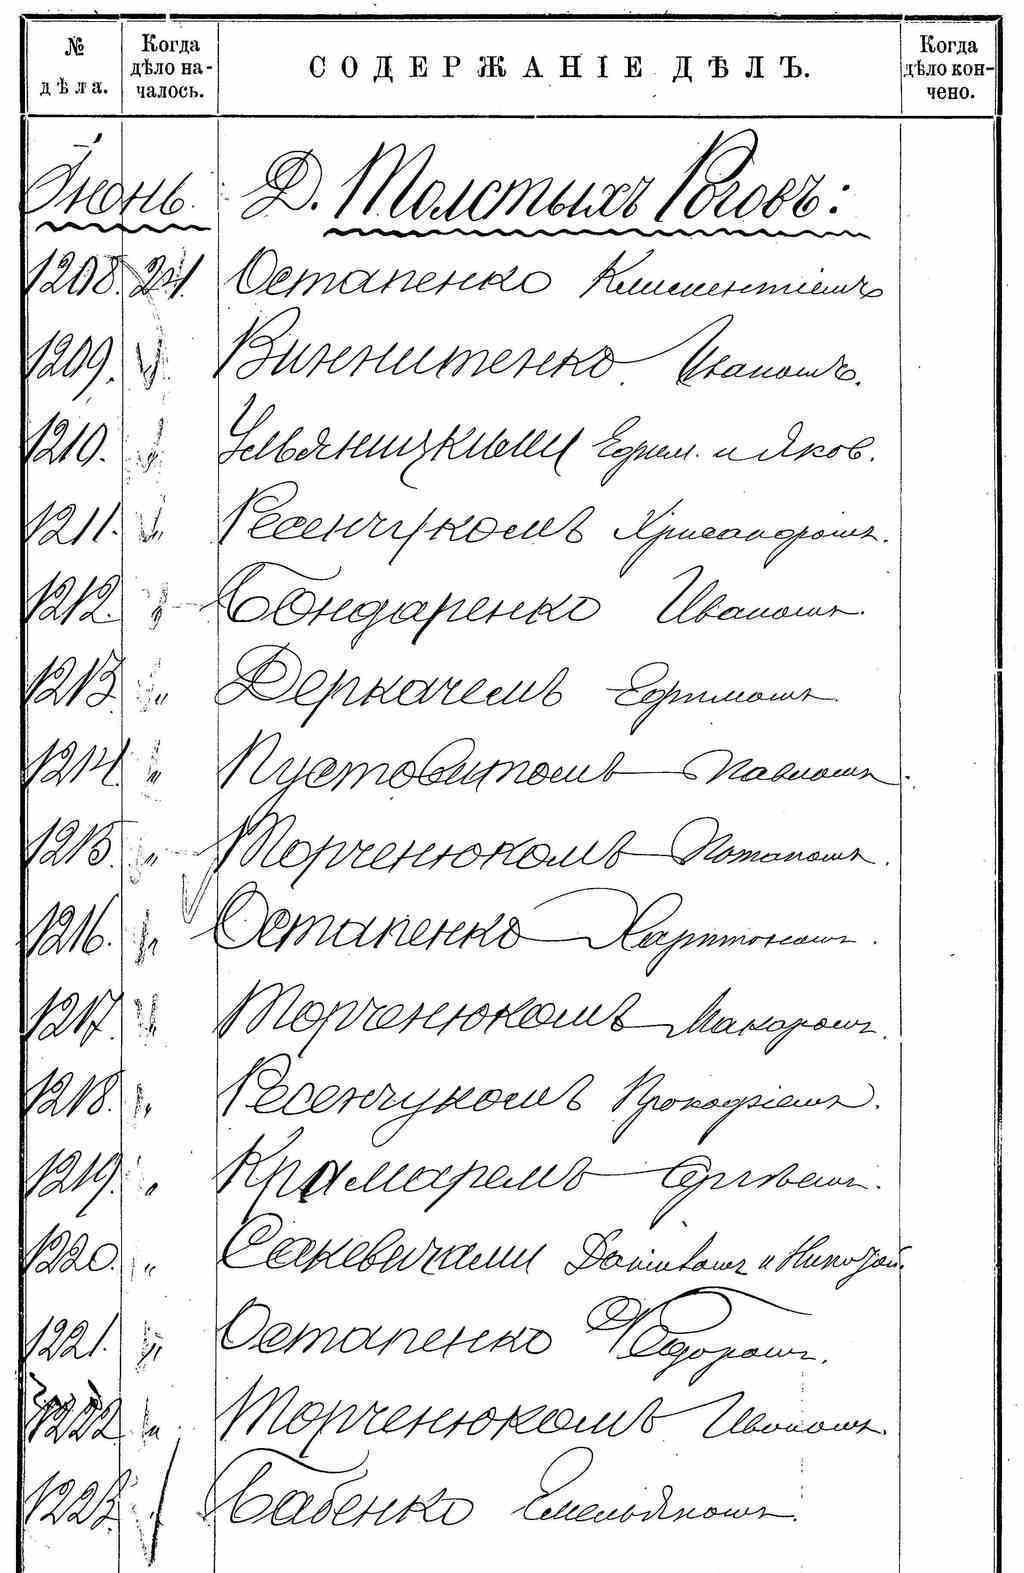 № дѣла.
Когда дѣло началось.
СОДЕРЖАНІЕ ДѢЛЪ.
Когда дѣло кончено.
Іюнь. Д. Толстыхъ Роговъ:
1208. 24. Остапенко Климентіемъ
1209. " Виннитенко Иваномъ.
1210. " Ульяницкими Ефим. и Яков.
1211. " Ресенчукомъ Хрисанфомъ.
1212. " Бондаренко Иваномъ.
1213. " Деркачемъ Ефимомъ
1214. " Пустовитомъ Павломъ
1215. " Торченюкомъ Потапомъ.
1216. " Остапенко Харитономъ.
1217. " Торченюкомъ Макаромъ.
1218. " Ресенчукомъ Прокофіемъ.
1219. " Крамаремъ Сергѣемъ.
1220. " Сакевичами и Николай.
1221. " Остапенко Федоромъ.
1222 " Торченюкомъ Иваномъ.
1223. Бабенко Емельяномъ.